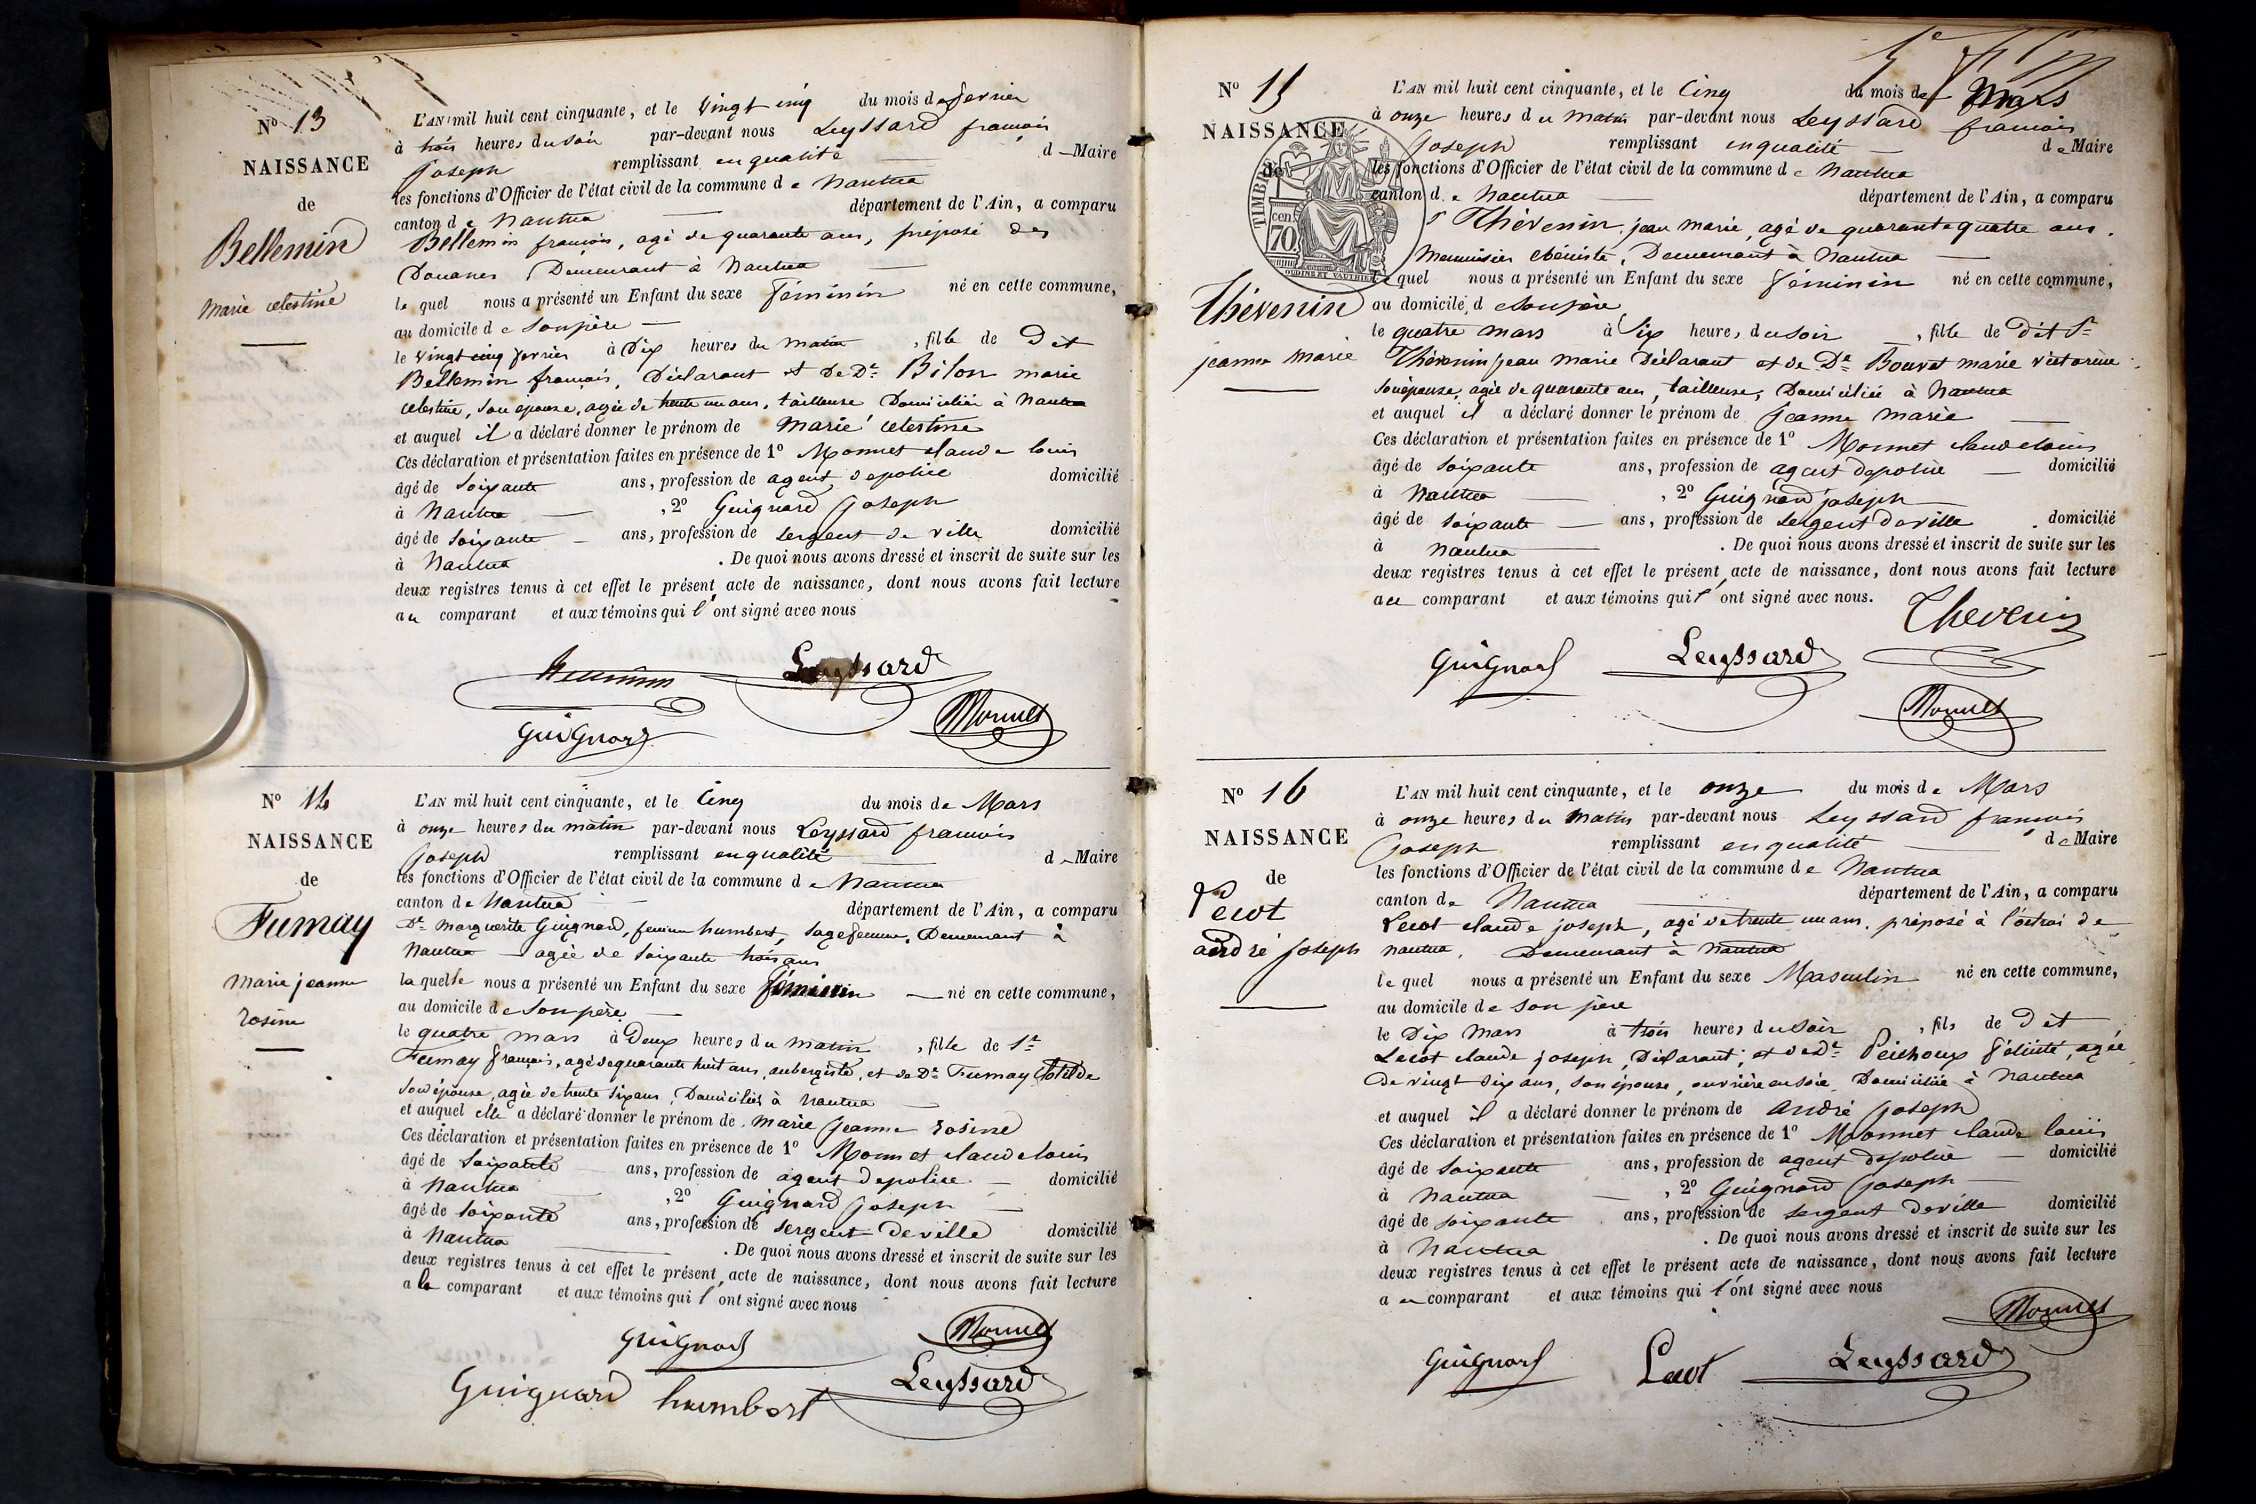 N° 13
NAISSANCE
de
Bellemin
Marie celestine
L'AN mil huit cent cinquante, et le Vingt cinq du mois de fevrier
à trois heures du soir par-devant nous Leyssard françois
Joseph remplissant en qualité de Maire
les fonctions d'Officier de l'état civil de la commune de Nantua
canton de Nantua département de l'Ain, a comparu
Bellemin françois, agé de quarante ans, préposé des
Douanes Demeurant à Nantua
le quel nous a présenté un Enfant du sexe féminin né en cette commune,
au domicile de son père
le vingt cinq fevrier à Dix heures du matin, fille de Dit
Bellemin françois, Déclarant et de De Bilon marie
celestine, son épouse, agée de trente un ans, tailleuse Domiciliée à Nantua
et auquel il a déclaré donner le prénom de Marie celestine
Ces déclaration et présentation faites en présence de 1° Monnet claude louis
âgé de soixante ans, profession de agent de police domicilié
à Nantua, 2° Guignard Joseph
âgé de soixante ans, profession de sergent de ville domicilié
à Nantua. De quoi nous avons dressé et inscrit de suite sur les
deux registres tenus à cet effet le présent acte de naissance, dont nous avons fait lecture
au comparant et aux témoins qui l'ont signé avec nous
Leyssard
Monnet
Guignard
N° 14
NAISSANCE
de
Fumay
Marie jeanne
rosine
L'AN mil huit cent cinquante, et le Cinq du mois de Mars
à onze heures du matin par-devant nous Leyssard françois
Joseph remplissant en qualité de Maire
les fonctions d'Officier de l'état civil de la commune de Nantua
canton de Nantua département de l'Ain, a comparu
De Marguerite Guignard, femme humbert, sage femme, Demeurant à
Nantua agée de soixante trois ans
la quelle nous a présenté un Enfant du sexe féminin né en cette commune,
au domicile de son père
le quatre mars à Deux heures du matin, fille de Sr
Fumay françois, agé de quarante huit ans, aubergiste, et de De Fumay Clotilde
son épouse, agée de trente six ans, Domiciliés à Nantua
et auquel elle a déclaré donner le prénom de marie jeanne rosine
Ces déclaration et présentation faites en présence de 1° Monnet claude louis
âgé de soixante ans, profession de agent de police domicilié
à Nantua, 2° Guignard Joseph
âgé de soixante ans, profession de sergent de ville domicilié
à Nantua. De quoi nous avons dressé et inscrit de suite sur les
deux registres tenus à cet effet le présent acte de naissance, dont nous avons fait lecture
a la comparant et aux témoins qui l'ont signé avec nous
Guignard
Monnet
Guignard humbert
Leyssard
N° 15
NAISSANCE
de
Thévenin
jeanne marie
TIMBRE
cen
70
L'AN mil huit cent cinquante, et le Cinq du mois de Mars
à onze heures du matin par-devant nous Leyssard françois
Joseph remplissant en qualité de Maire
les fonctions d'Officier de l'état civil de la commune de Nantua
canton de Nantua département de l'Ain, a comparu
Sr Thévenin jean marie, agé de quarante quatre ans,
Menuisier ebéniste, Demeurant à Nantua
le quel nous a présenté un Enfant du sexe féminin né en cette commune,
au domicile de son père
le quatre mars à Six heures du soir, fille de Dit Sr
Thévenin jean marie Déclarant et de De Bouvet marie victorine
son épouse, agée de quarante ans, tailleuse, Domiciliée à Nantua
et auquel il a déclaré donner le prénom de Jeanne Marie
Ces déclaration et présentation faites en présence de 1° Monnet claude louis
âgé de soixante ans, profession de agent de police domicilié
à Nantua, 2° Guignard joseph
âgé de soixante ans, profession de sergent de ville domicilié
à Nantua. De quoi nous avons dressé et inscrit de suite sur les
deux registres tenus à cet effet le présent acte de naissance, dont nous avons fait lecture
au comparant et aux témoins qui l'ont signé avec nous.
Thevenin
Guignard
Leyssard
Monnet
N° 16
NAISSANCE
de
Lecot
andré joseph
L'AN mil huit cent cinquante, et le onze du mois de Mars
à onze heures du matin par-devant nous Leyssard françois
Joseph remplissant en qualité de Maire
les fonctions d'Officier de l'état civil de la commune de Nantua
canton de Nantua département de l'Ain, a comparu
Lecot claude joseph, agé de trente un ans, préposé à l'octroi de
nantua, Demeurant à Nantua
le quel nous a présenté un Enfant du sexe Masculin né en cette commune,
au domicile de son père
le Dix Mars à trois heures du soir, fils de Dit
Lecot claude joseph, Déclarant, et de De Peichoux Félicité, agée
de vingt six ans, son épouse, ouvrière en soie Domiciliée à Nantua
et auquel il a déclaré donner le prénom de André Joseph
Ces déclaration et présentation faites en présence de 1° Monnet claude louis
âgé de soixante ans, profession de agent de police domicilié
à Nantua, 2° Guignard Joseph
âgé de soixante ans, profession de sergent de ville domicilié
à Nantua. De quoi nous avons dressé et inscrit de suite sur les
deux registres tenus à cet effet le présent acte de naissance, dont nous avons fait lecture
au comparant et aux témoins qui l'ont signé avec nous
Monnet
Guignard
Lecot
Leyssard